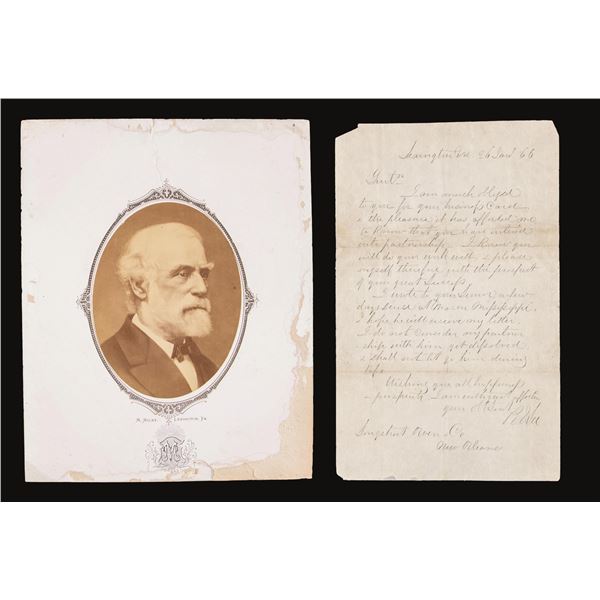 M. Miley. Lexington, Va
Lexington Va 26 Jan 66
Gentn
I am much obliged
to you for your business Card
& the pleasure it has afforded me
to know that you have entered
into partnership. I know you
will do your work well, & please
myself therefore with the prospect
of your great success.
I wrote to your Senior a few
days since at Macon Mississippi
I hope he will receive my letter.
I do not consider my partner
ship with him yet dissolved
& shall not let go him during
life.
Wishing you all happiness
& prosperity I am with great affection
your obt servt
R E Lee
Longstreet Owen & Co
New Orleans